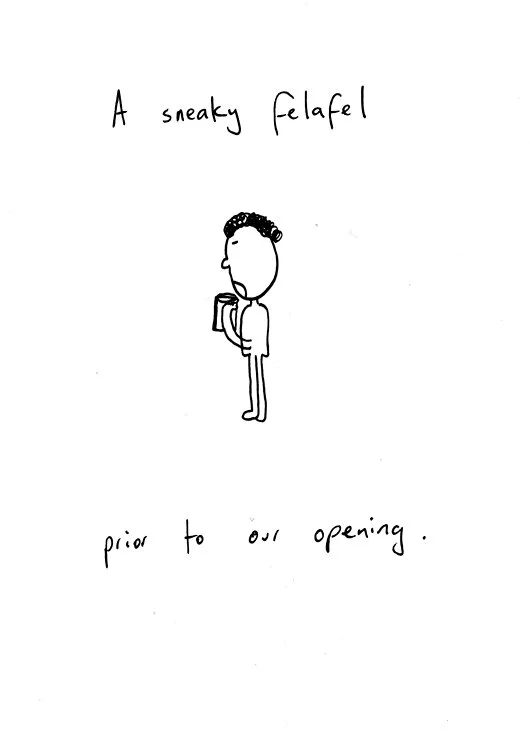 A sneaky felafel
prior to our opening.